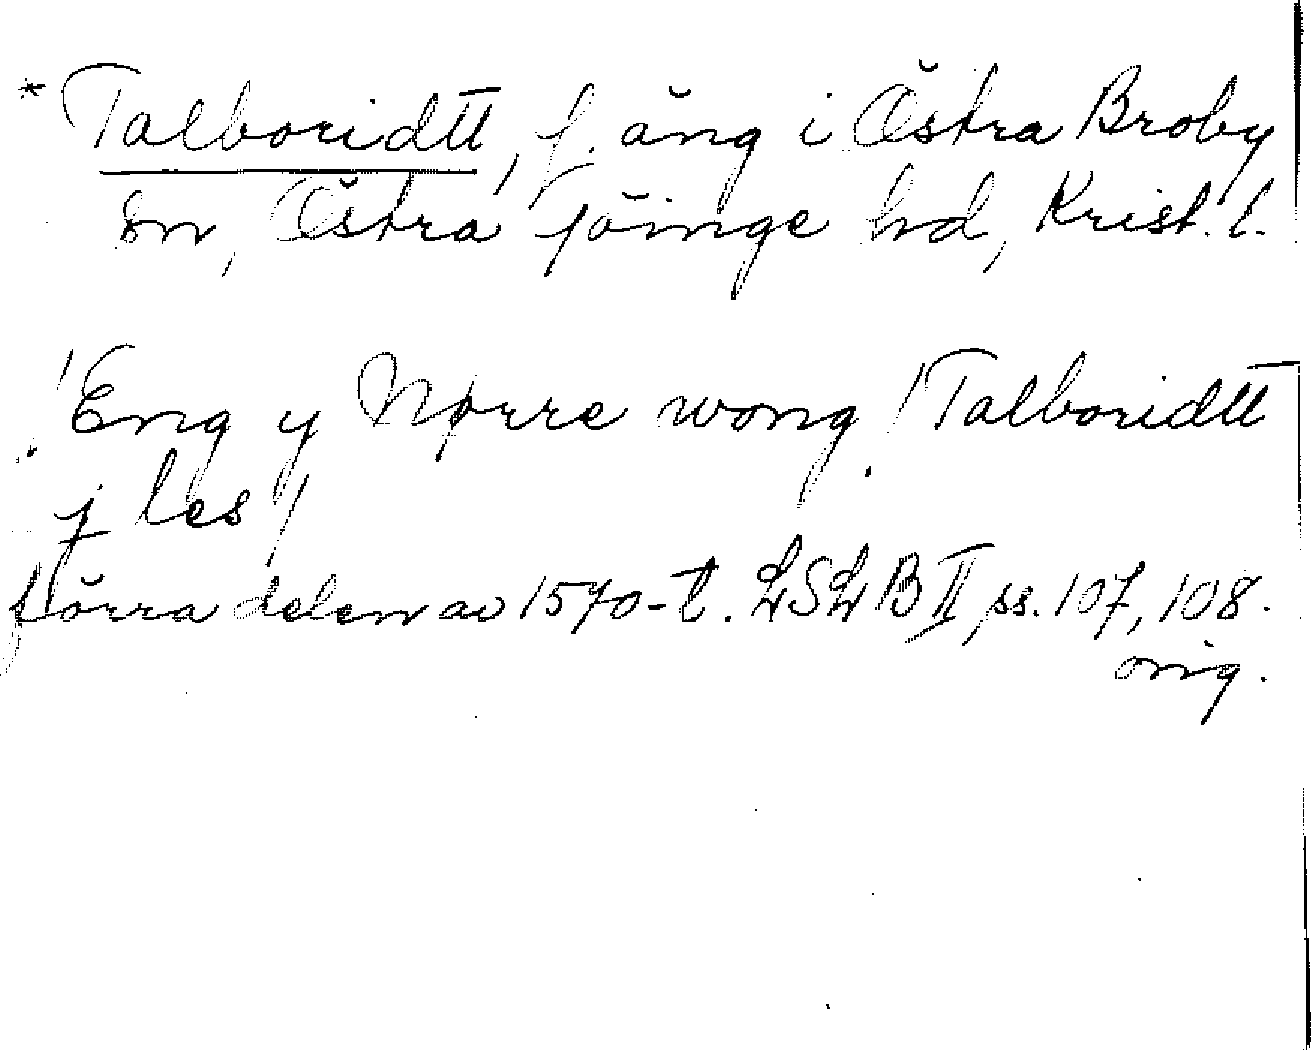 * Talboridtt, f. äng i Östra Broby
sn, Östra Göinge hd, Krist. l.
! Eng y Nørre wong ! Talboridtt
j les /
förra delen av 1570-t. LSLB II ss. 107, 108.
orig.